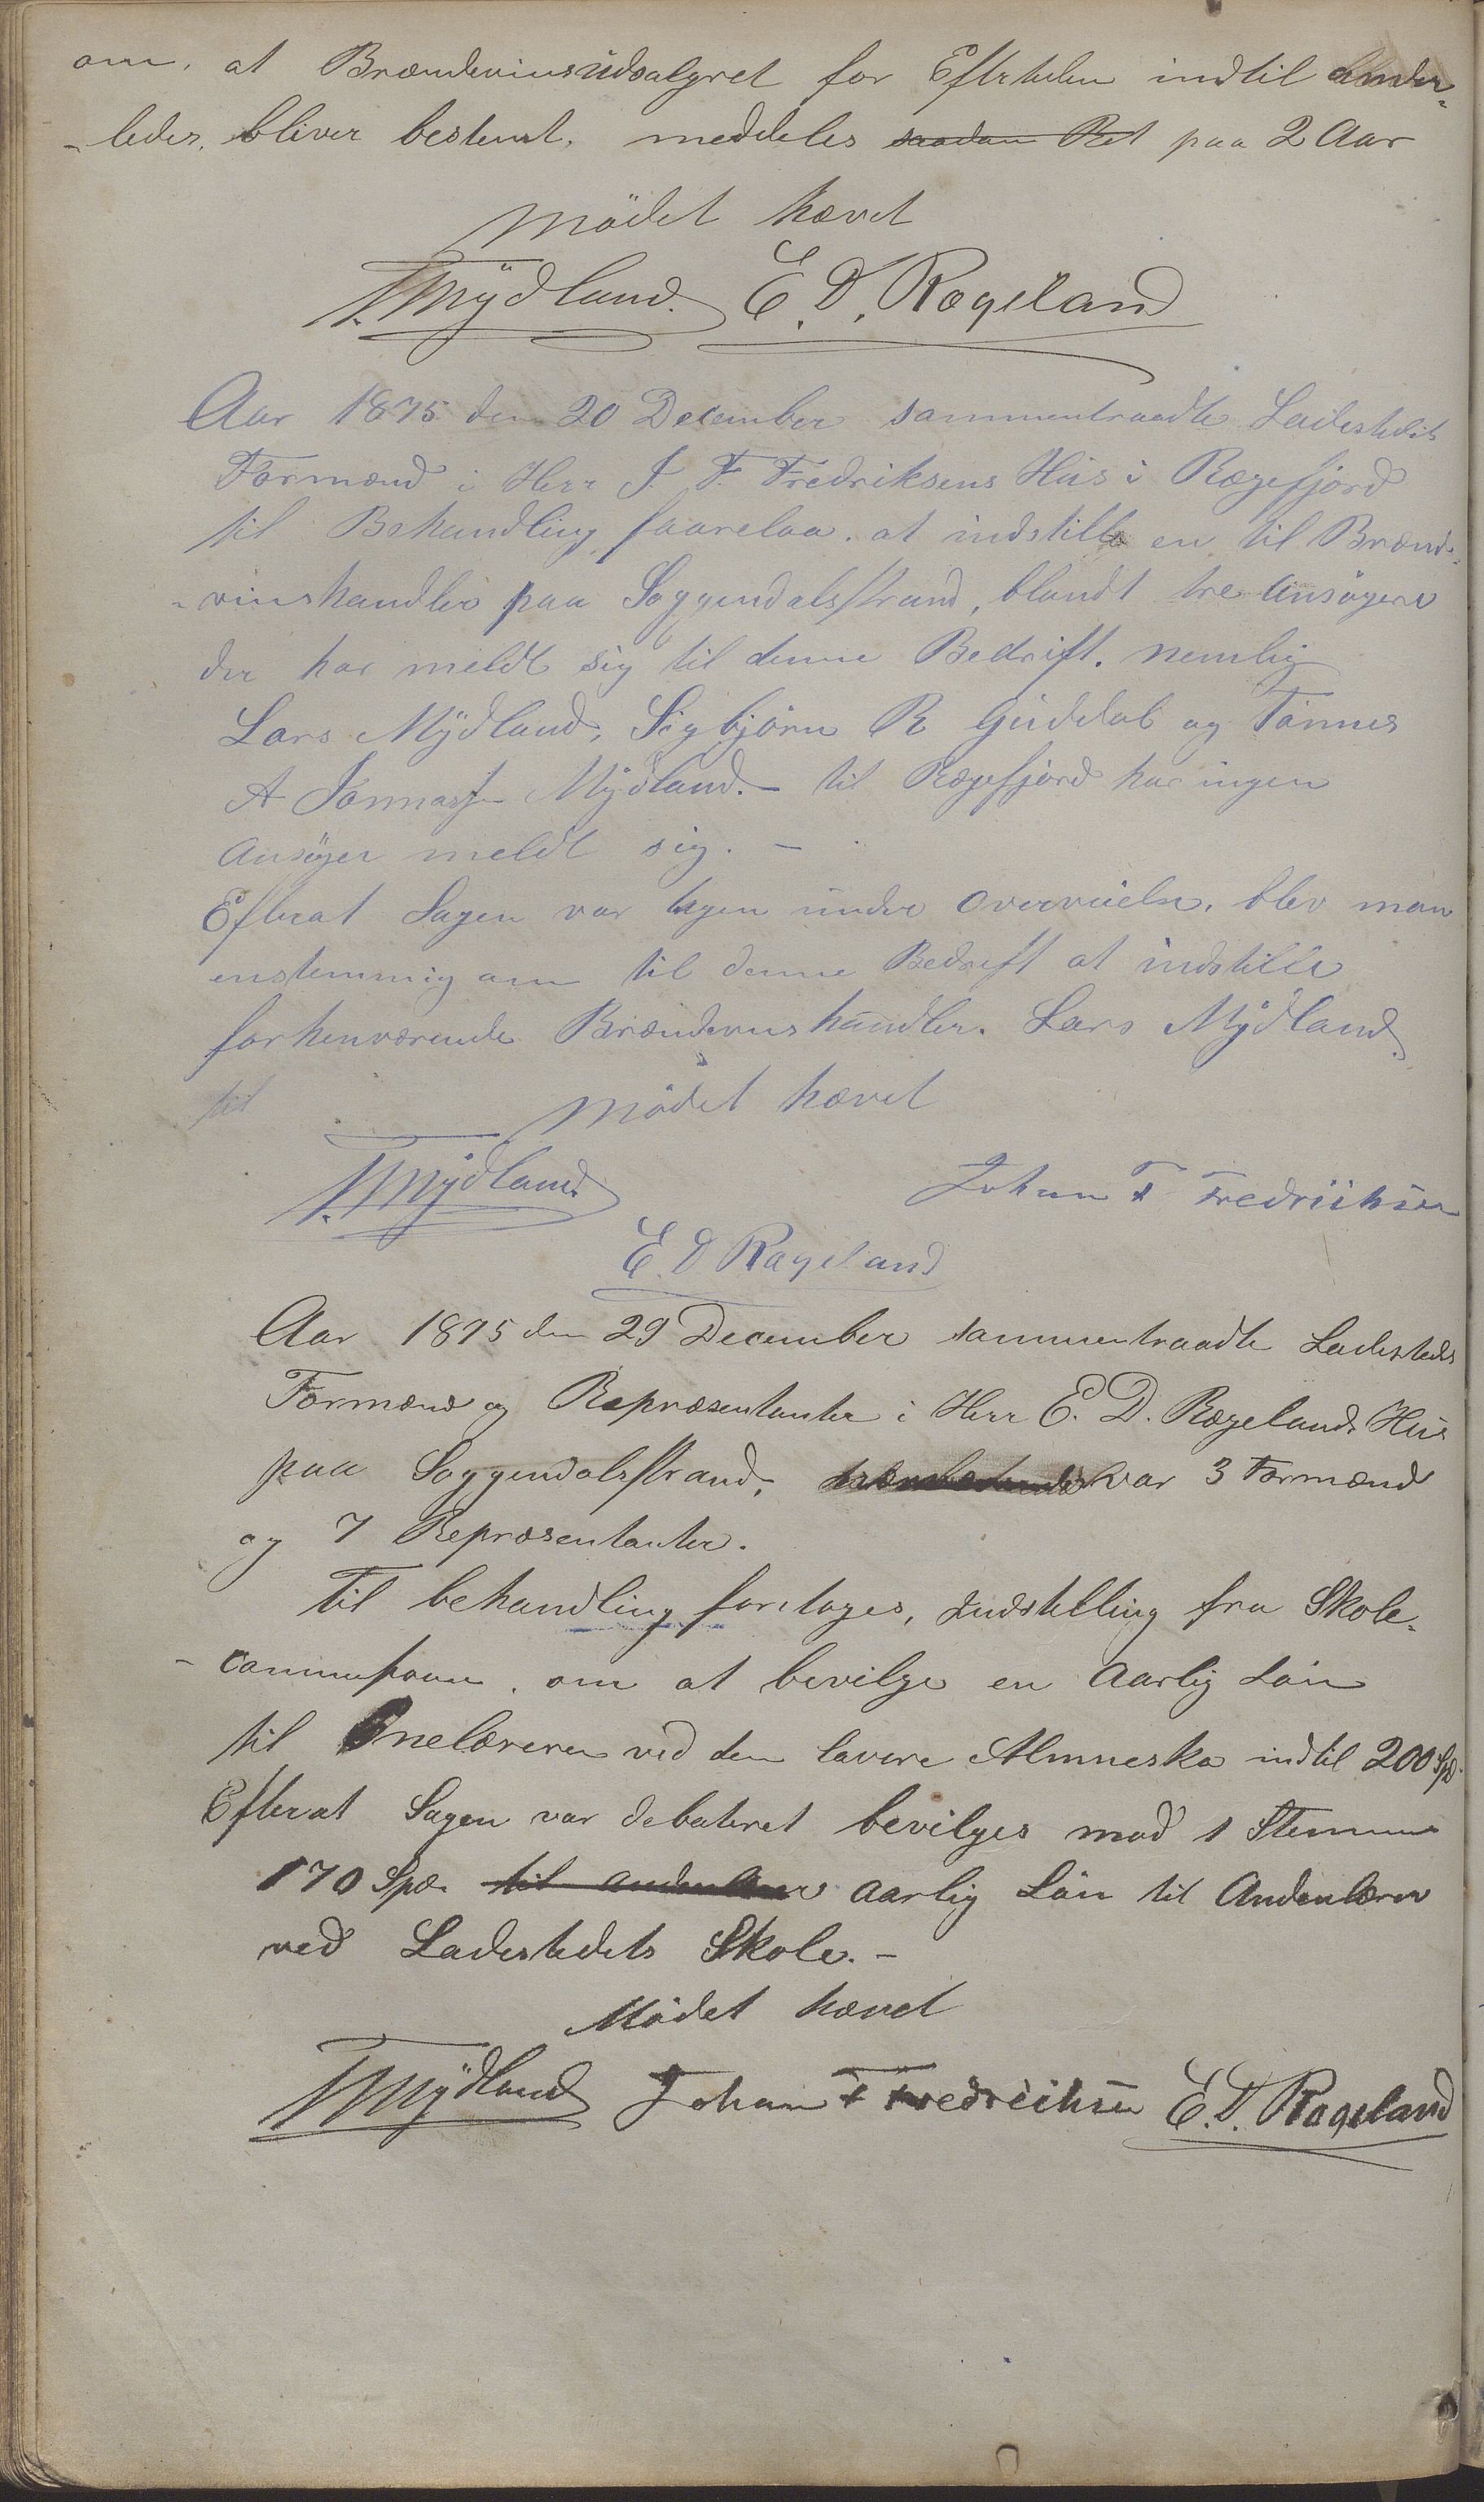 om, at Brændevinsudsalgret for Eftertiden indtil ander-
-ledes, bliver bestemt, meddeles saadan Ret paa 2 Aar
Mödet hævet
T. Mÿdland. E. D. Rægeland
Aar 1875 den 20 December sammentraadte Ladestedets
Formænd i Herr J. F. Fredriksens Hus i Rægefjord
til Behandling faarelaa. at indstille en til Brænde-
-vinshandler paa Soggendalsstrand, blandt tre Ansögere
der har meldt sig til denne Bedrift. nemlig
Lars Mÿdland, Sigbjörn R Guddal og Tönnes
A Jonnassen Mÿdland. – til Rægefjord har ingen
Ansöger meldt sig. –
Efterat Sagen var tagen under Overveielse, blev man
enstemmig om til denne Bedrift at indstille
forhenværende Brændevinshandler. Lars Mÿdland.
til
Mödet hævet
T. Mÿdland.
Johan F Fredriichsen
E. D Rægeland
Aar 1875 den 29 December sammentraadte Ladesteds
Formænd og Repræsentanter i Herr E. D. Rægelands Hus
paa Soggendalsstrand, var 3 Formænd
og 7 Repræsentanter.
Til behandling foretoges, Indstilling fra Skole-
-commissionen, om at bevilge en Aarlig Lön
til Enelæreren ved den lavere Almuesko indtil 200 Spd.
Efterat Sagen var debateret bevilges mod 1 Stemme
170 Spd. til andenlærer aarlig Lön til Andenlærer
ved Ladestedets Skole. –
Mödet hævet
T. Mÿdland Johan F Fredreichsen E. D. Rægeland